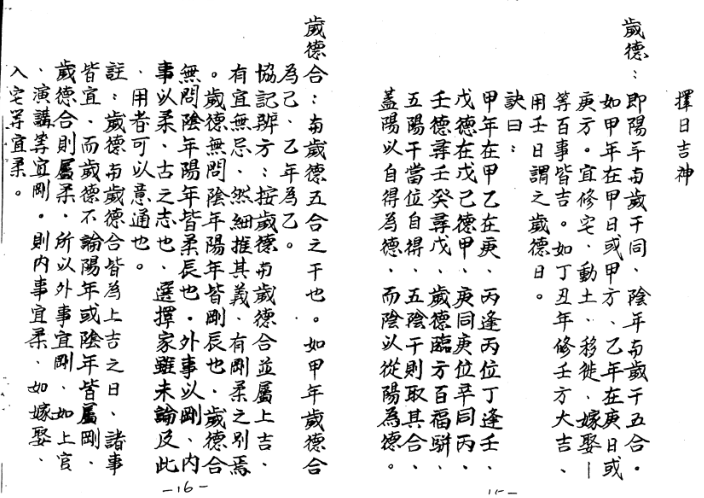 擇日吉神
歲德：即陽年与歲干同、陰年与歲干五合。
如甲年在甲日或甲方、乙年在庚日或
庚方。宜修宅、動土、移徙、嫁娶—
等百事皆吉。如丁丑年修壬方大吉、
用壬日謂之歲德日。
訣曰：
甲年在甲乙在庚、丙逢丙位丁逢壬、
戊德在戊己德甲、庚同庚位辛同丙、
壬德尋壬癸尋戊、歲德臨方百福駢、
五陽干當位自得、五陰干則取其合、
蓋陽以自得為德、而陰以從陽為德。
15-
歲德合：与歲德五合之干也。如甲年歲德合
為己、乙年為乙。
協記辨方：按歲德与歲德合並屬上吉、
有宜無忌、然細推其義、有剛柔之別焉
。歲德無問陰年陽年皆剛辰也、歲德合
無問陰年陽年皆柔辰也。外事以剛、內
事以柔、古之志也、選擇家雖未論及此
、用者可以意通也。
註：歲德与歲德合皆為上吉之日、諸事
皆宜、而歲德不論陽年或陰年皆屬剛、
歲德合則屬柔、所以外事宜剛、如上官
、演講等宜剛。則內事宜柔、如嫁娶、
入宅等宜柔。
-16-